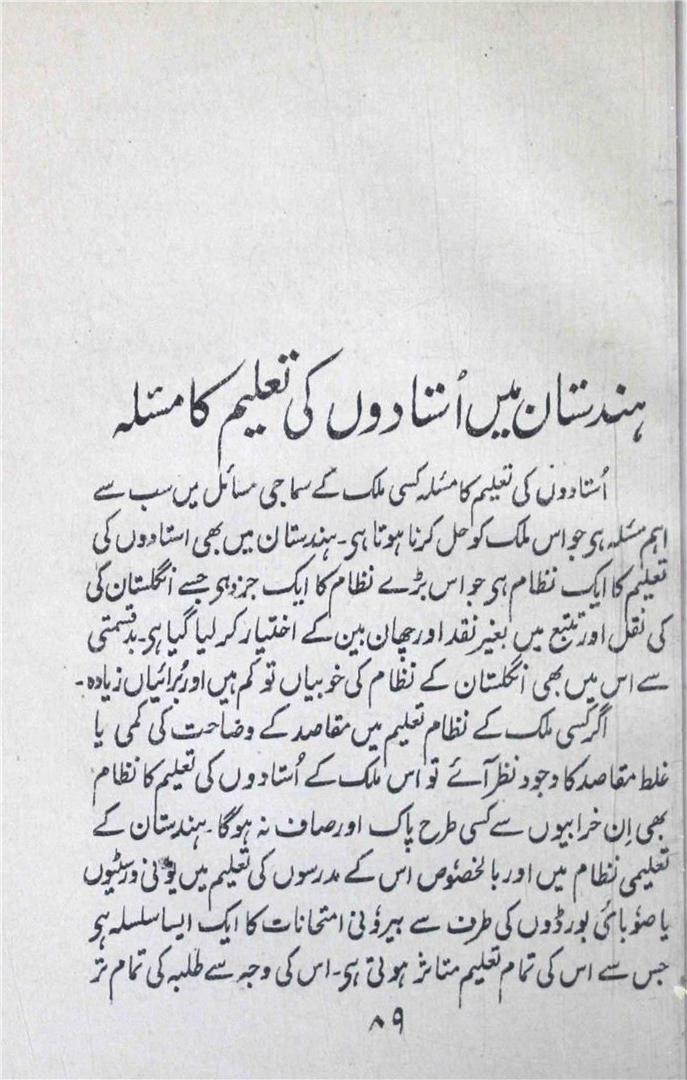 ہندستان میں اُستادوں کی تعلیم کا مسئلہ
اُستادوں کی تعلیم کا مسئلہ کسی ملک کے سماجی مسائل میں سب سے
اہم مسئلہ ہو جو اس ملک کو حل کرنا ہوتا ہی۔ ہندستان میں بھی استادوں کی
تعلیم کا ایک نظام ہو جو اس بڑے نظام کا ایک جزدہو جسے انگلستان کی
کی نقل اور تتبع میں بغیر نقد اور چھان بین کے اختیار کر لیا گیا ہی۔ بدقسمتی
سے اس میں بھی انگلستان کے نظام کی خوبیاں تو کم ہیں اور بُرائیاں زیادہ۔
اگر کسی ملک کے نظام تعلیم میں مقاصد کے وضاحت کی کمی یا
غلط مقاصد کا وجود نظر آئے تو اس ملک کے اُستادوں کی تعلیم کا نظام
بھی اِن خرابیوں سے کسی طرح پاک اور صاف نہ ہوگا۔ ہندستان کے
تعلیمی نظام میں اور بالخصُوص اس کے مدرسوں کی تعلیم میں یوٗنی ورسٹیوں
یا صوٗبائی بورڈوں کی طرف سے بیروٗنی امتحانات کا ایک ایسا سلسلہ ہو
جس سے اس کی تمام تعلیم متاثر ہوتی ہی۔ اس کی وجہ سے طلبہ کی تمام تر
۸۹